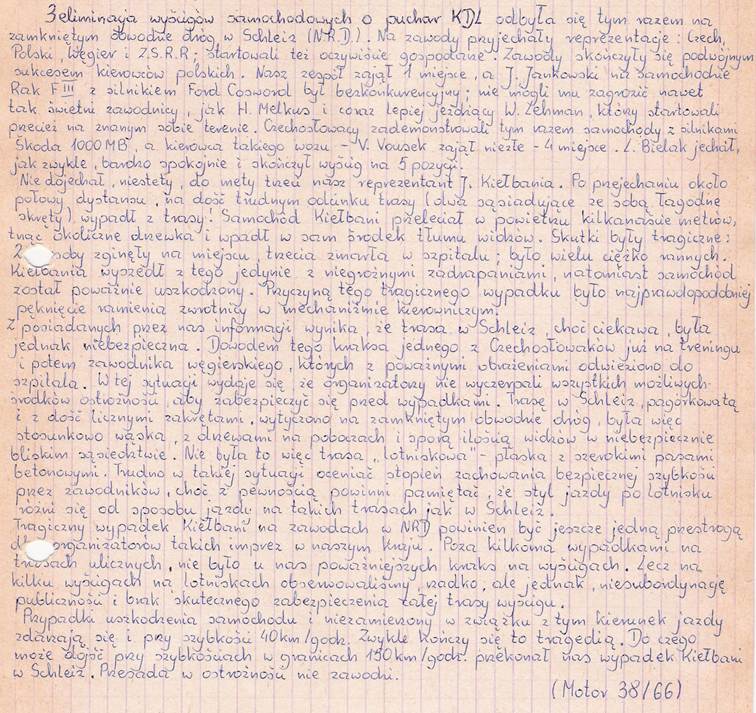 3 eliminacja wyścigów samochodowych o puchar KDL odbyła się tym razem na
zamkniętym obwodzie dróg w Schleiz (N.R.D.). Na zawody przyjechały reprezentacje: Czech,
Polski, Węgier i Z.S.R.R; startowali też oczywiście gospodarze. Zawody skończyły się podwójnym
sukcesem kierowców polskich. Nasz zespół zajął 1 miejsce, a J. Jankowski na samochodzie
Rak F III z silnikiem Ford Cosword był bezkonkurencyjny; nie mogli mu zagrozić nawet
tak świetni zawodnicy, jak H. Melkus i coraz lepiej jeżdżący W. Lehman, który startowali
przecież na znanym sobie terenie. Czechosłowacy zademonstrowali tym razem samochody z silnikami
Skoda 1000 MB, a kierowca takiego wozu - V. Vousek zajął niezłe - 4 miejsce. L. Bielak jechał,
jak zwykle, bardzo spokojnie i skończył wyścig na 5 pozycji.
Nie dojechał, niestety, do mety trzeci nasz reprezentant J. Kiełbania. Po przejechaniu około
połowy dystansu, na dość trudnym odcinku trasy (dwa sąsiadujące ze sobą łagodne
skręty) wypadł z trasy! Samochód Kiełbani przeleciał w powietrzu kilkanaście metrów,
tnąc okoliczne drzewka i wpadł w sam środek tłumu widzów. Skutki były tragiczne:
2 osoby zginęły na miejscu, trzecia zmarła w szpitalu; było wielu ciężko rannych.
Kiełbania wyszedł z tego jedynie z niegroźnymi zadrapaniami, natomiast samochód
został poważnie uszkodzony. Przyczyną tego tragicznego wypadku było najprawdopodobniej
pęknięcie ramienia zwrotnicy w mechaniźmie kierowniczym.
Z posiadanych przez nas informacji wynika, że trasa w Schleiz, choć ciekawa, była
jednak niebezpieczna. Dowodem tego kraksa jednego z Czechosłowaków już na treningu
i potem zawodnika węgierskiego, których z poważnymi obrażeniami odwieziono do
szpitala. W tej sytuacji wydaje się, że organizatorzy nie wyczerpali wszystkich możliwych
środków ostrożności, aby zabezpieczyć się przed wypadkami. Trasę w Schleiz, pagórkowatą
i z dość licznymi zakrętami, wytyczono na zamkniętym obwodzie dróg, była więc
stosunkowo wąska, z drzewami na poboczach i sporą ilością widzów w niebezpiecznie
bliskim sąsiedztwie. Nie była to więc trasa „lotniskowa" - płaska z szerokimi pasami
betonowymi. Trudno w takiej sytuacji oceniać stopień zachowania bezpiecznej szybkości
przez zawodników, choć z pewnością powinni pamiętać, że styl jazdy po lotnisku
różni się od sposobu jazdu na takich trasach jak w Schleiz.
Tragiczny wypadek Kiełbani na zawodach w NRD powinien być jeszcze jedną przestrogą
dla organizatorów takich imprez w naszym kraju. Poza kilkoma wypadkami na
trasach ulicznych, nie było u nas poważniejszych kraks na wyścigach. Lecz na
kilku wyścigach na lotniskach obserwowaliśmy, rzadko, ale jednak, niesubordynację
publiczności i brak skutecznego zabezpieczenia całej trasy wyścigu.
Przypadki uszkodzenia samochodu i niezamierzony w związku z tym kierunek jazdy
zdarzają się i przy szybkości 40km/godz. Zwykle kończy się to tragedią. Do czego
może dojść przy szybkościach w granicach 150km/godz. przekonał nas wypadek Kiełbani
w Schleiz. Przesada w ostrożności nie zawodzi.
(Motor 38/66)